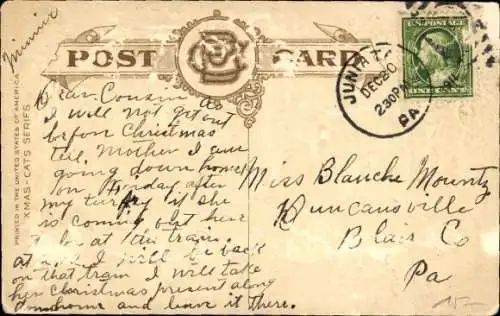 Minnie
POST CARD
PRINTED IN THE UNITED STATES OF AMERICA
XMAS-CATS SERIES
JUNIATA
DEC 20
2 30 PM
PA.
U.S. POSTAGE
Dear Cousin
I will not get out
before Christmas
tell Mother I am
going down home
on Friday after
my turkey if she
is coming out here
to be at the train.
at I will be back
on that train I will take
her Christmas present along
home and leave it there.
Miss Blanche Mountz
Duncansville
Blair Co
Pa
15-